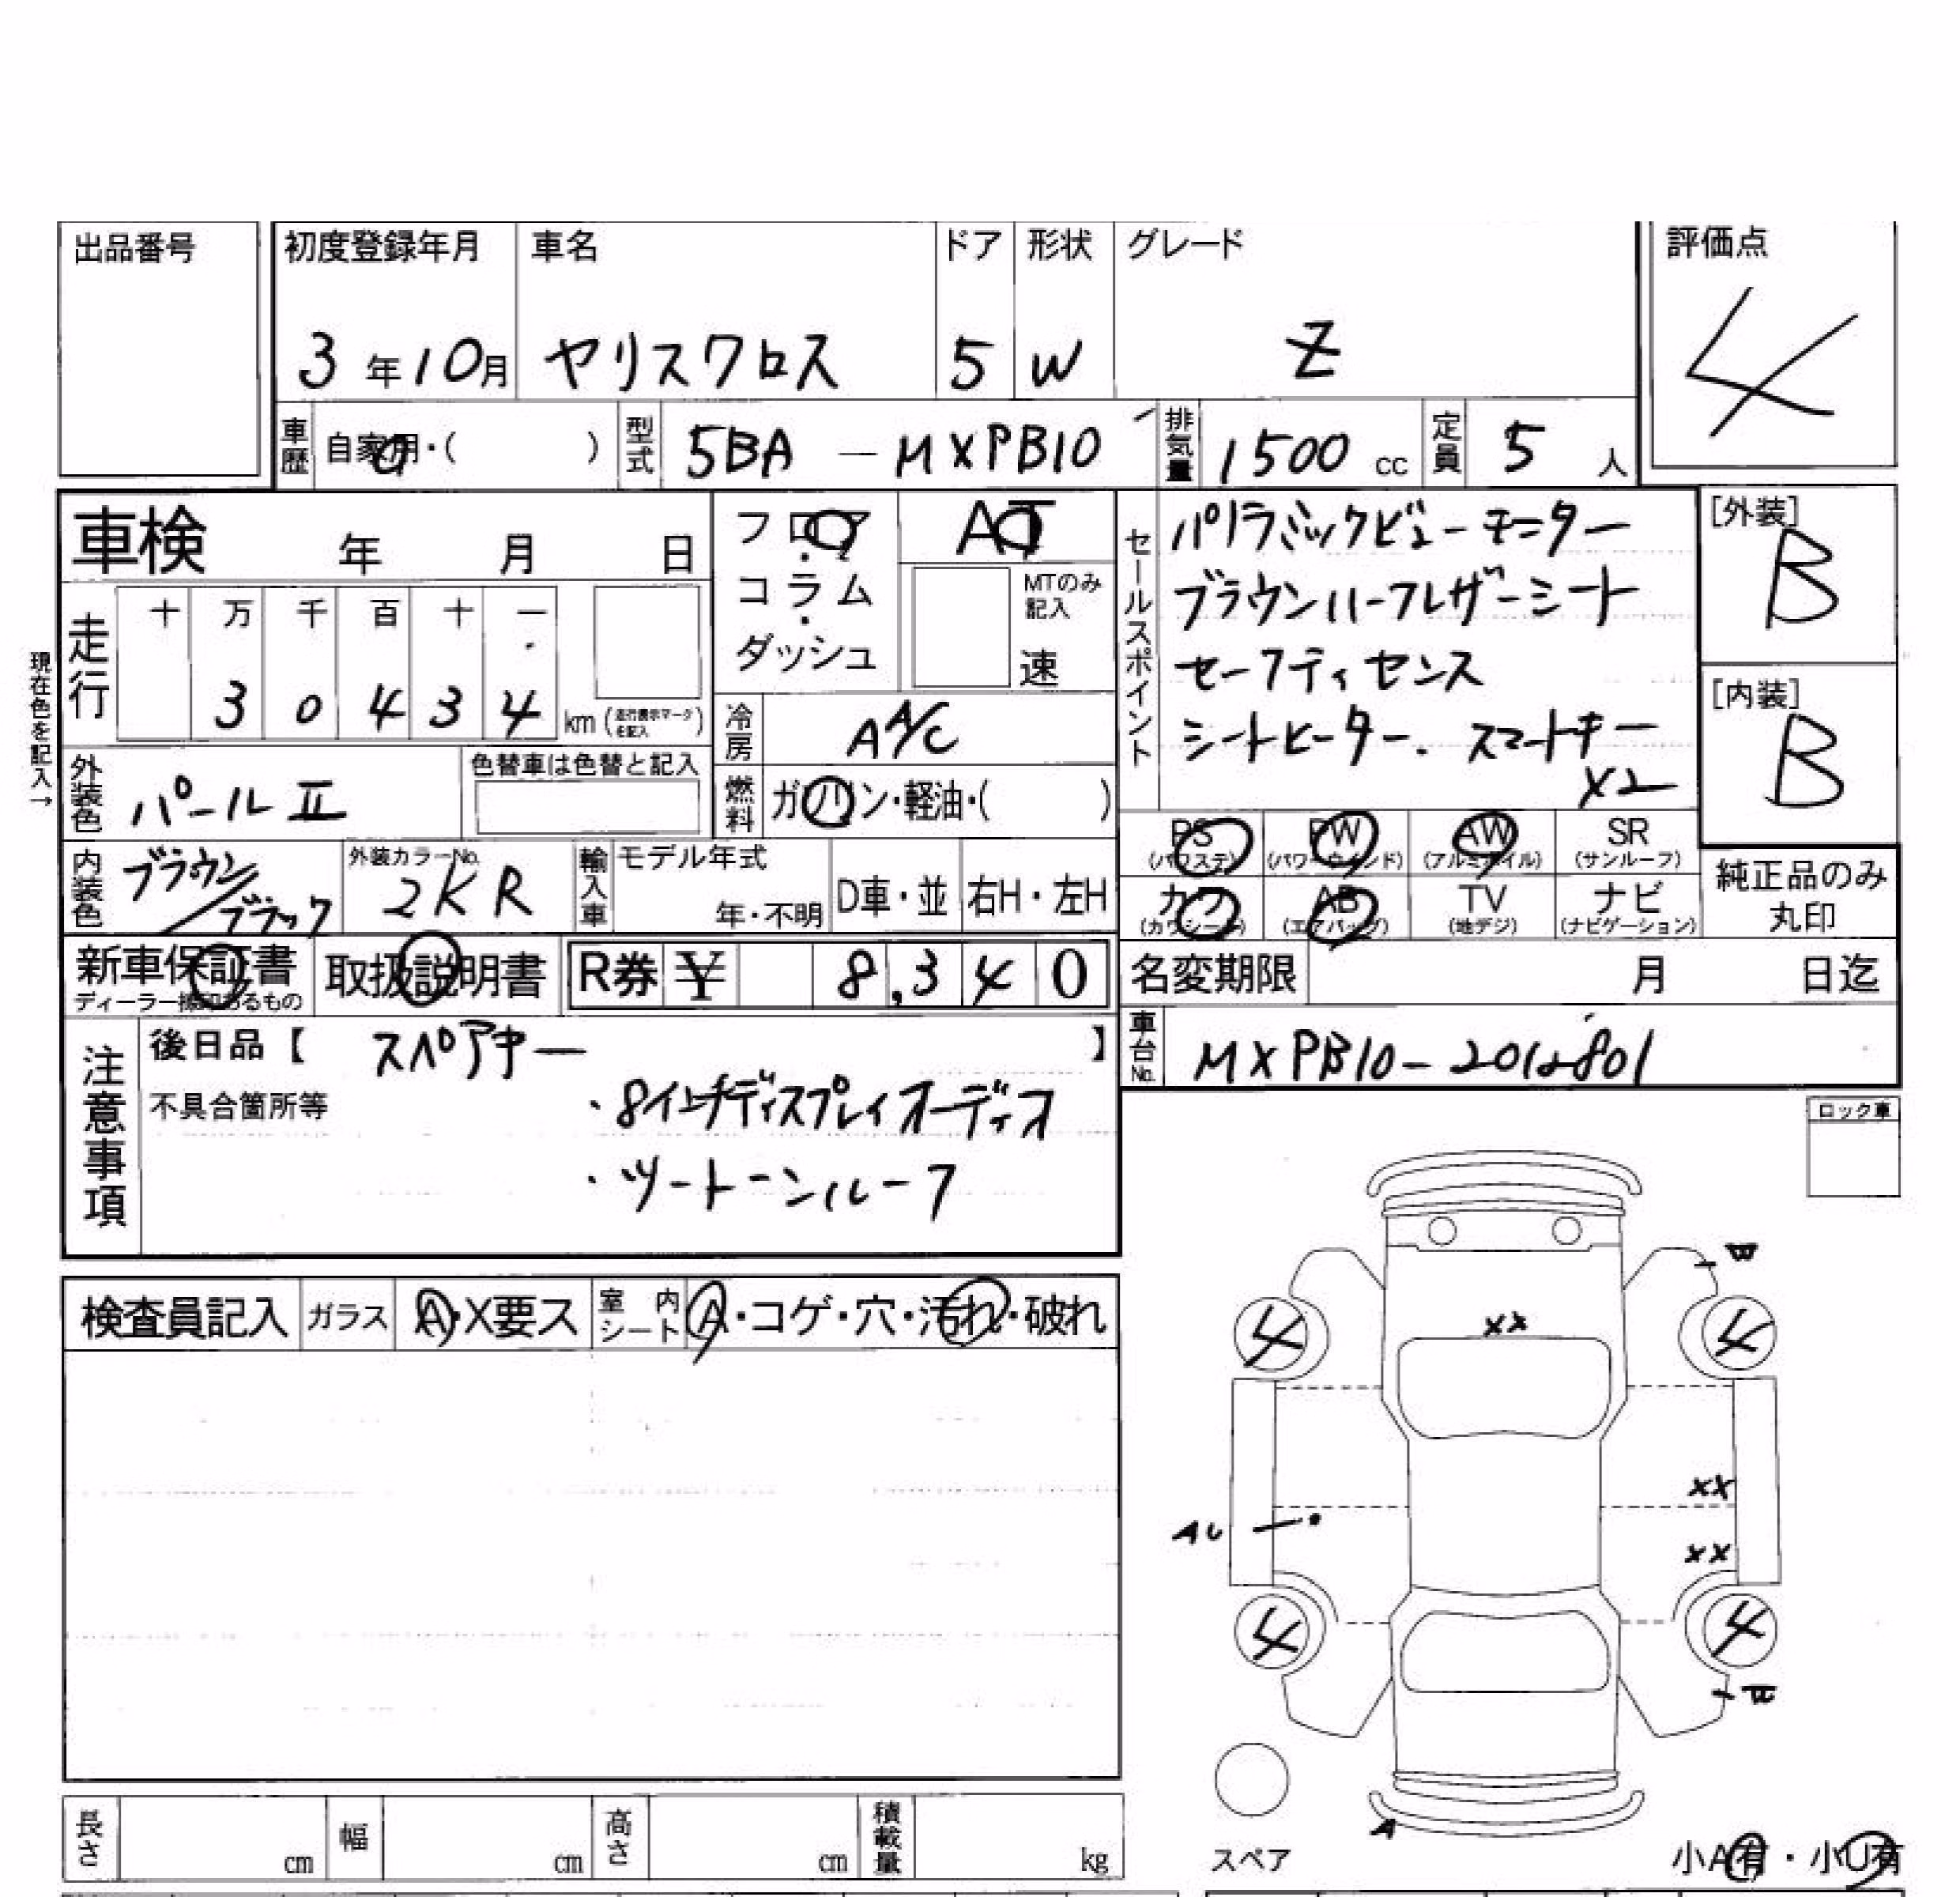 出品番号
初度登録年月 車名 ドア 形状 グレード 評価点
3年10月 ヤリスクロス 5 W Z 4
車歴 自家用・( ) 型式 5BA-MXPB10 排気量 1500cc 定員 5人
車検 年 月 日
フロア・コラム・ダッシュ
AT
MTのみ記入
速
セールスポイント
パノラミックビューモニター
ブラウンハーフレザーシート
セーフティセンス
シートヒーター. スマートキー
X2
[外装]
B
[内装]
B
現在色を記入→
走行 十 万 千 百 十 一
3 0 4 3 4 km (走行表示マークを記入)
冷房 AA/C
外装色 パールⅡ 色替車は色替と記入
燃料 ガソリン・軽油・( )
内装色 ブラウン/ブラック 外装カラーNo. 2KR 輸入車 モデル年式 年・不明 D車・並 右H・左H
PS (パワステ) PW (パワーウインド) AW (アルミホイル) SR (サンルーフ)
カワ (カワシート) AB (エアバッグ) TV (地デジ) ナビ (ナビゲーション)
純正品のみ
丸印
新車保証書 ディーラー捺印あるもの 取扱説明書 R券 ¥ 8,340
名変期限 月 日迄
車台No. MXPB10-
注意事項
後日品【 スペアキー 】
不具合箇所等
・8インチディスプレイオーディオ
・ツートーンルーフ
ロック車
検査員記入 ガラス A・X要ス 室内シート A・コゲ・穴・汚れ・破れ
W
XX
4 4
XX
AU
XX
4 4
A
スペア
小A有・小U有
長さ cm 幅 cm 高さ cm 積載量 kg